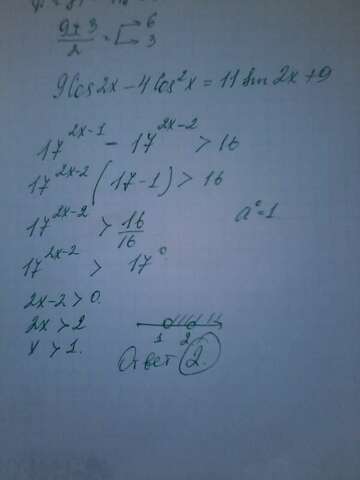 9±3/2 = [→ 6 → 3
9cos2x - 4cos²x = 11sin2x + 9
17^{2x-1} - 17^{2x-2} > 16
17^{2x-2} (17-1) > 16
17^{2x-2} > 16/16
a⁰=1
17^{2x-2} > 17⁰
2x-2>0.
2x>2
x>1.
1 2
Ответ 2.